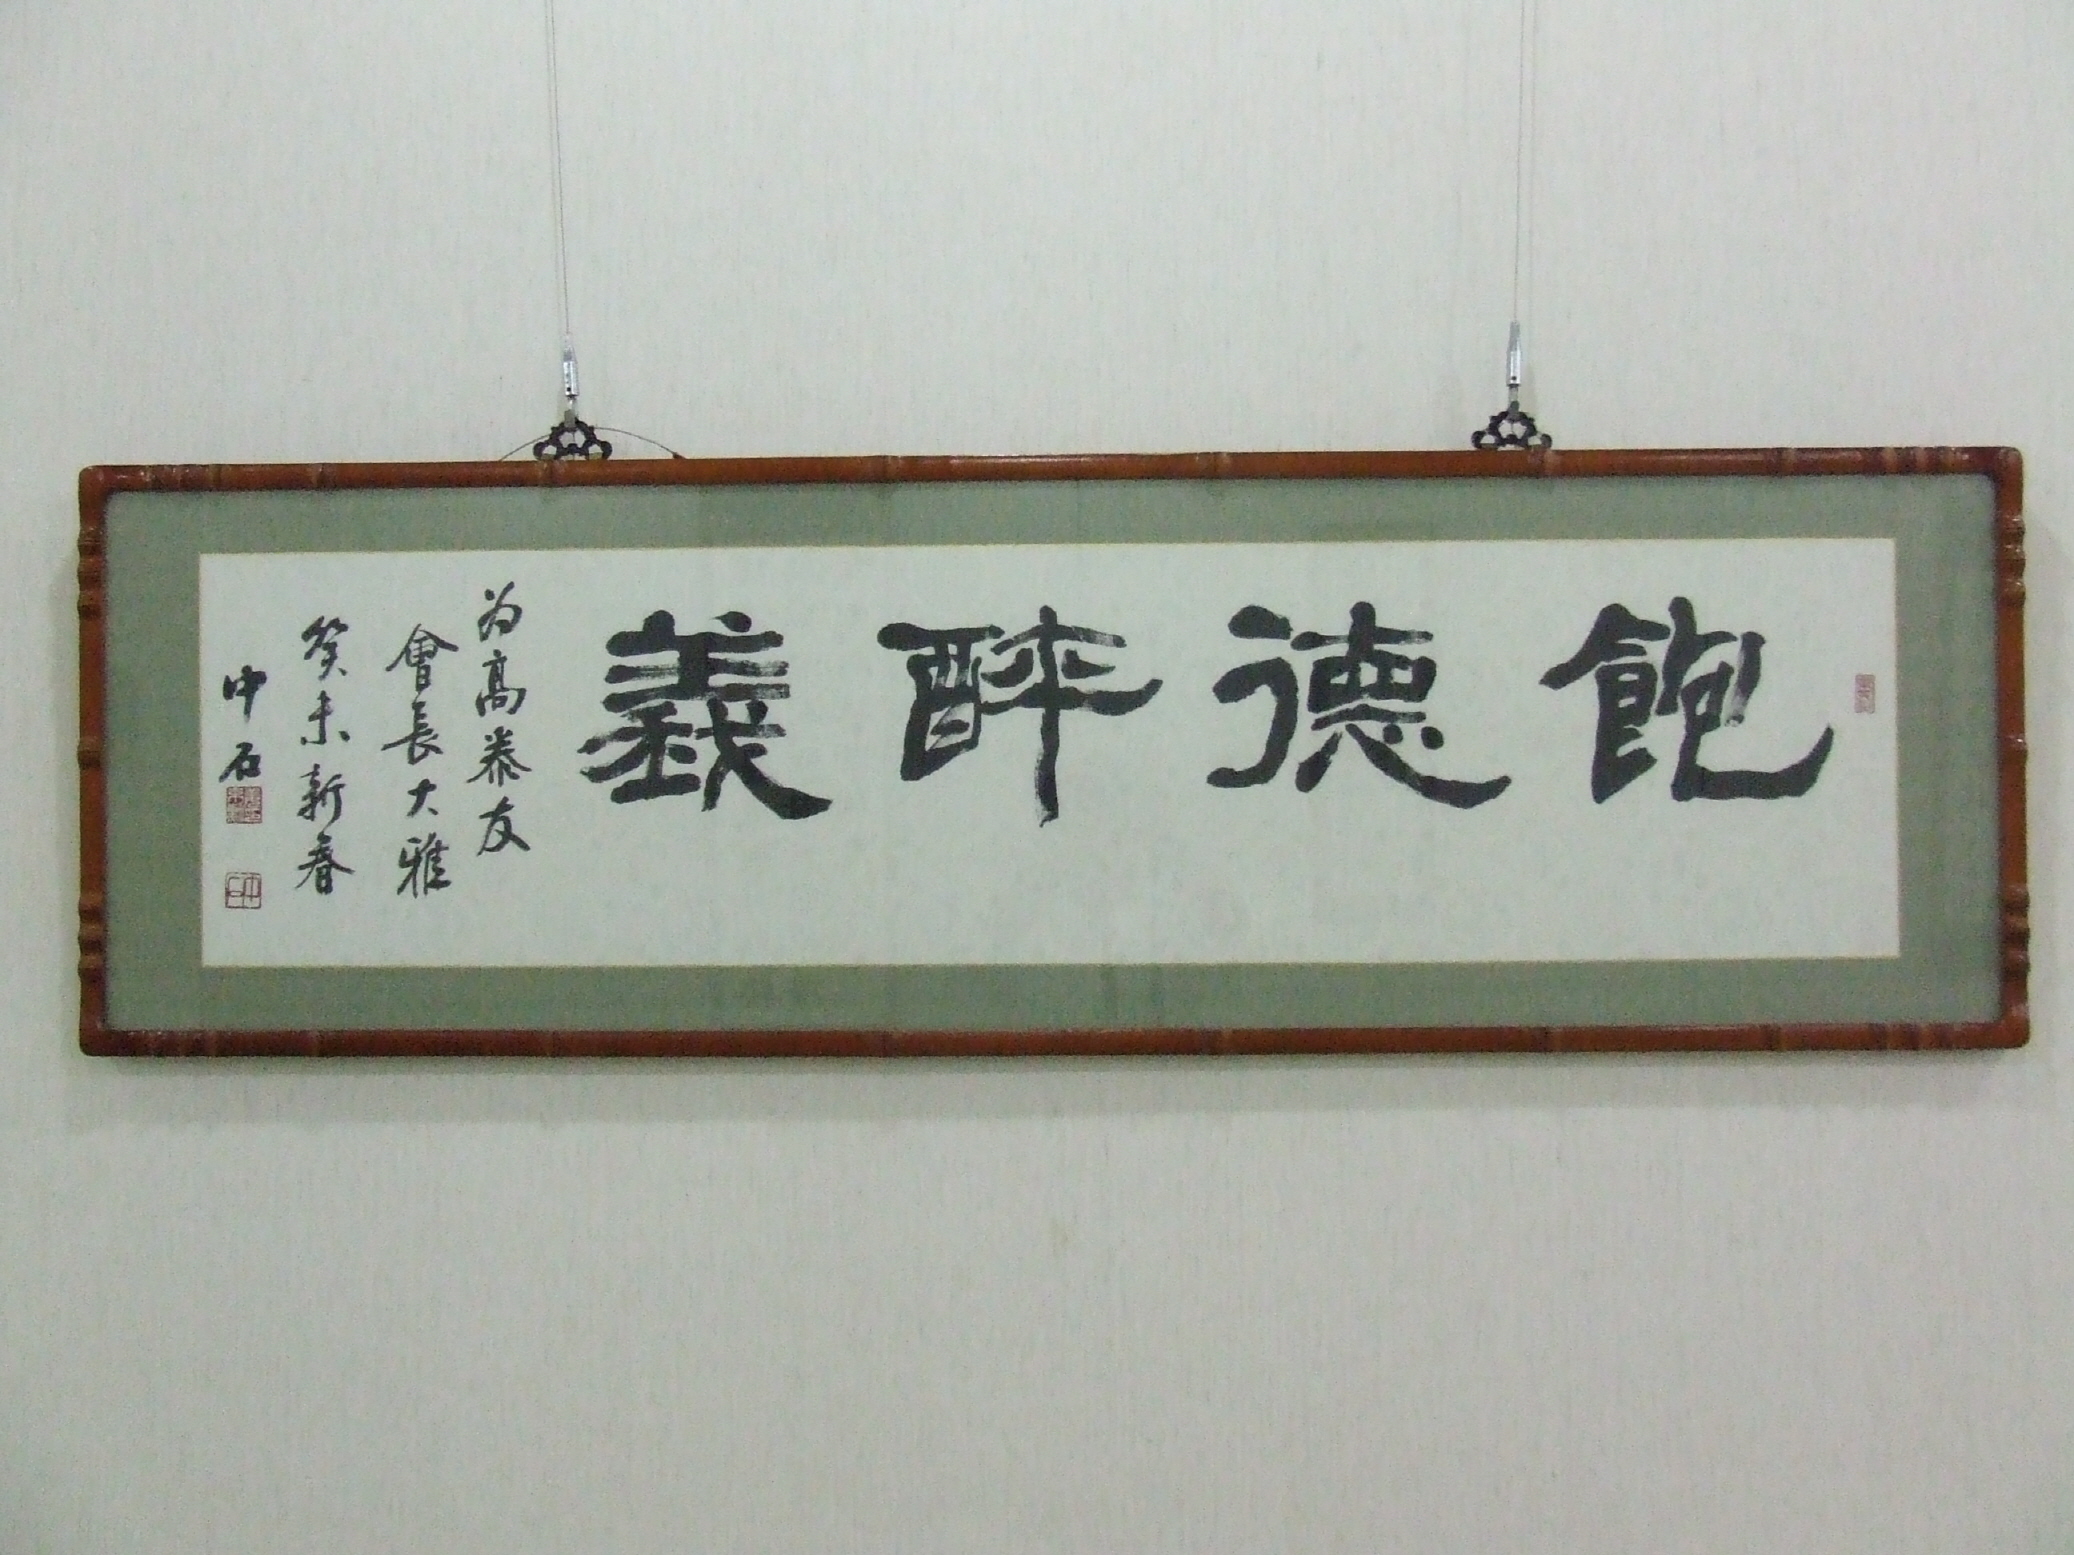 飽德醉義
为高泰友
會長大雅
癸未新春
中石